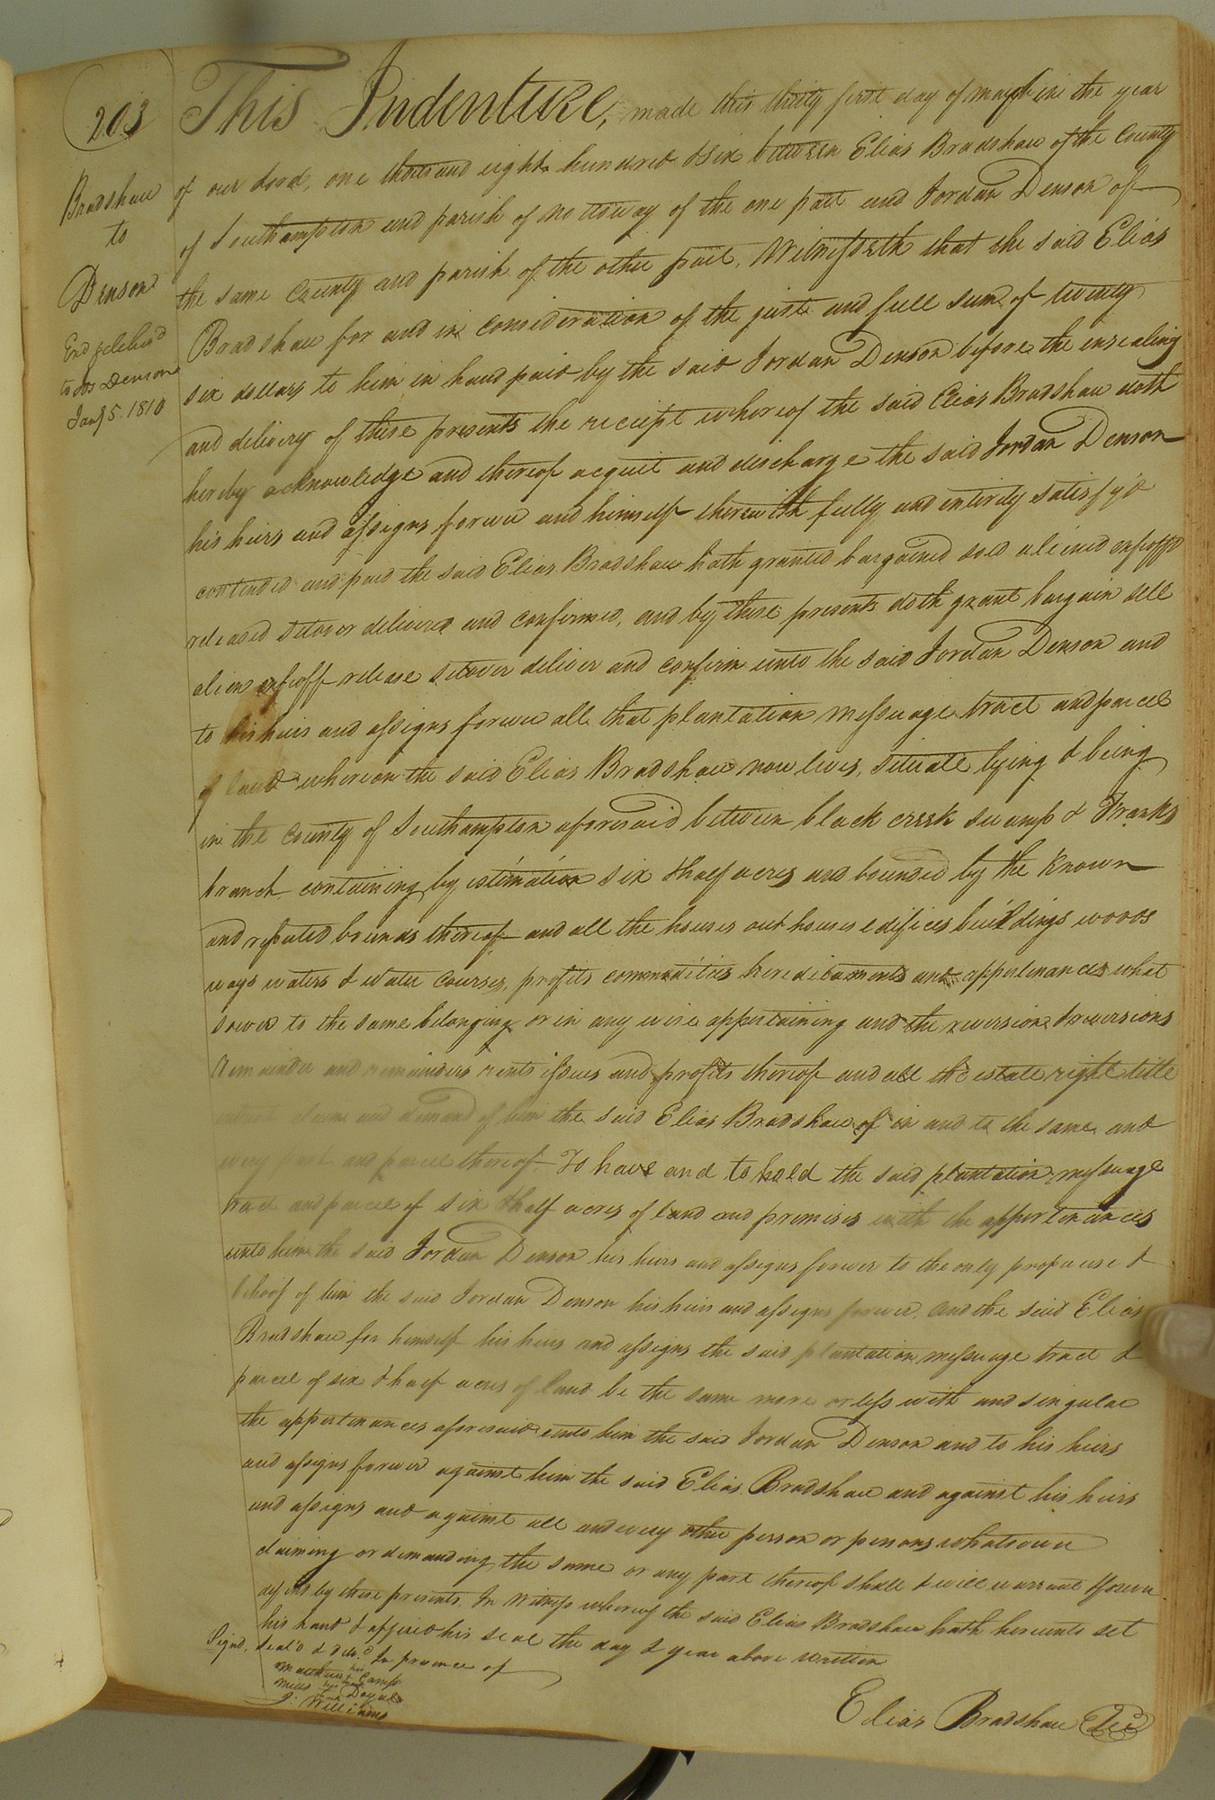 203
Bradshaw
to
Denson
Exd & deliver'd
to Jos Denson
Jany 5. 1810
This Indenture, made this thirty first day of may in the year
of our Lord, one thousand eight hundred & six between Elias Bradshaw of the County
of Southampton and parish of nottoway of the one part and Jordan Denson of
the same County and parish of the other part. Witnesseth that the said Elias
Bradshaw for and in consideration of the just and full sum of twenty
six dollars to him in hand paid by the said Jordan Denson before the ensealing
and delivery of these presents the receipt whereof the said Elias Bradshaw doth
hereby acknowledge and thereof acquit and discharge the said Jordan Denson
his heirs and assigns forever and himself therewith fully and entirely satisfy'd
contented and paid the said Elias Bradshaw hath granted bargained sold aliened enfeoff'd
released setover delivered and confirmed, and by these presents doth grant bargain sell
alien enfeoff release setover deliver and confirm unto the said Jordan Denson and
to his heirs and assigns forever all that plantation messuage tract and parcel
of land whereon the said Elias Bradshaw now lives, situate lying & being
in the County of Southampton aforesaid between black creek swamp & Franks
branch containing by estimation six & half acres and bounded by the known
and reputed bounds thereof and all the houses out houses edifices buildings woods
ways waters & water courses, profits commodities hereditaments and appertenances what
soever to the same belonging or in any wise appertaining and the reversion & reversions
remainder and remainders rents issues and profits thereof and all the estate right title
claim and demand of him the said Elias Bradshaw of in and to the same and
every part and parcel thereof To have and to hold the said plantation messuage
tract and parcel of six & half acres of land and premises with the appertenances
unto him the said Jordan Denson his heirs and assigns forever to the only proper use &
behoof of him the said Jordan Denson his heirs and assigns forever. and the said Elias
Bradshaw for himself his heirs and assigns the said plantation messuage tract &
parcel of six & half acres of land be the same more or less with and singular
the appertenances aforesaid unto him the said Jordan Denson and to his heirs
and assigns forever against him the said Elias Bradshaw and against his heirs
and assigns and against all and every other person or persons whatsoever
claiming or demanding the same or any part thereof shall & will warrant & forever
defend by these presents. In Witness whereof the said Elias Bradshaw hath hereunto set
his hand & affixed his seal the day & year above written
Signd, seal'd & deld. In presence of
Matthew Camp
Mills Doyal
J. Williams
Elias Bradshaw